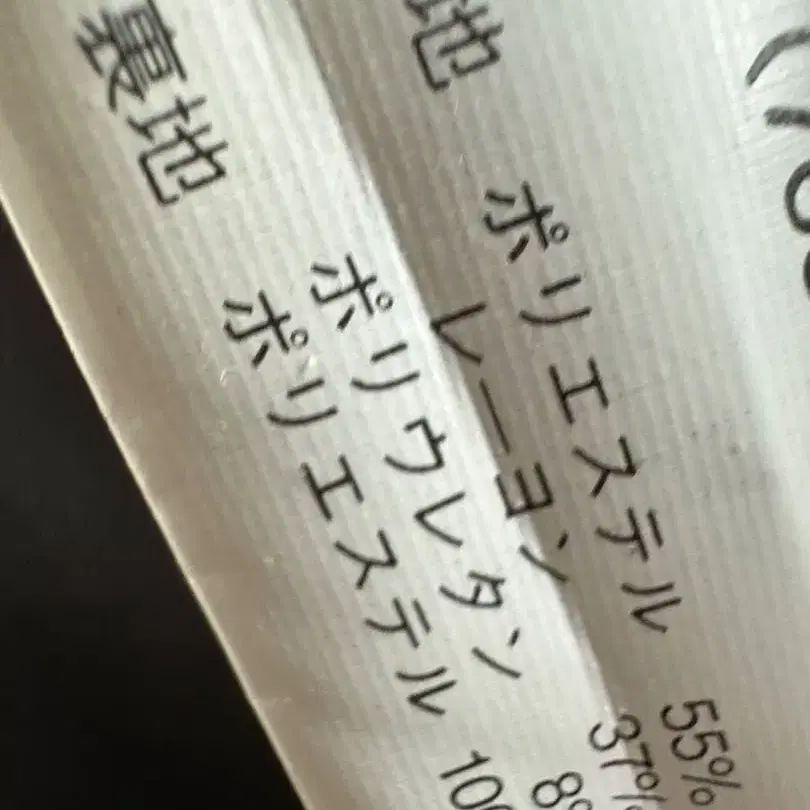 地 ポリエステル 55%
レーヨン 37%
ポリウレタン 8%
裏地 ポリエステル 100